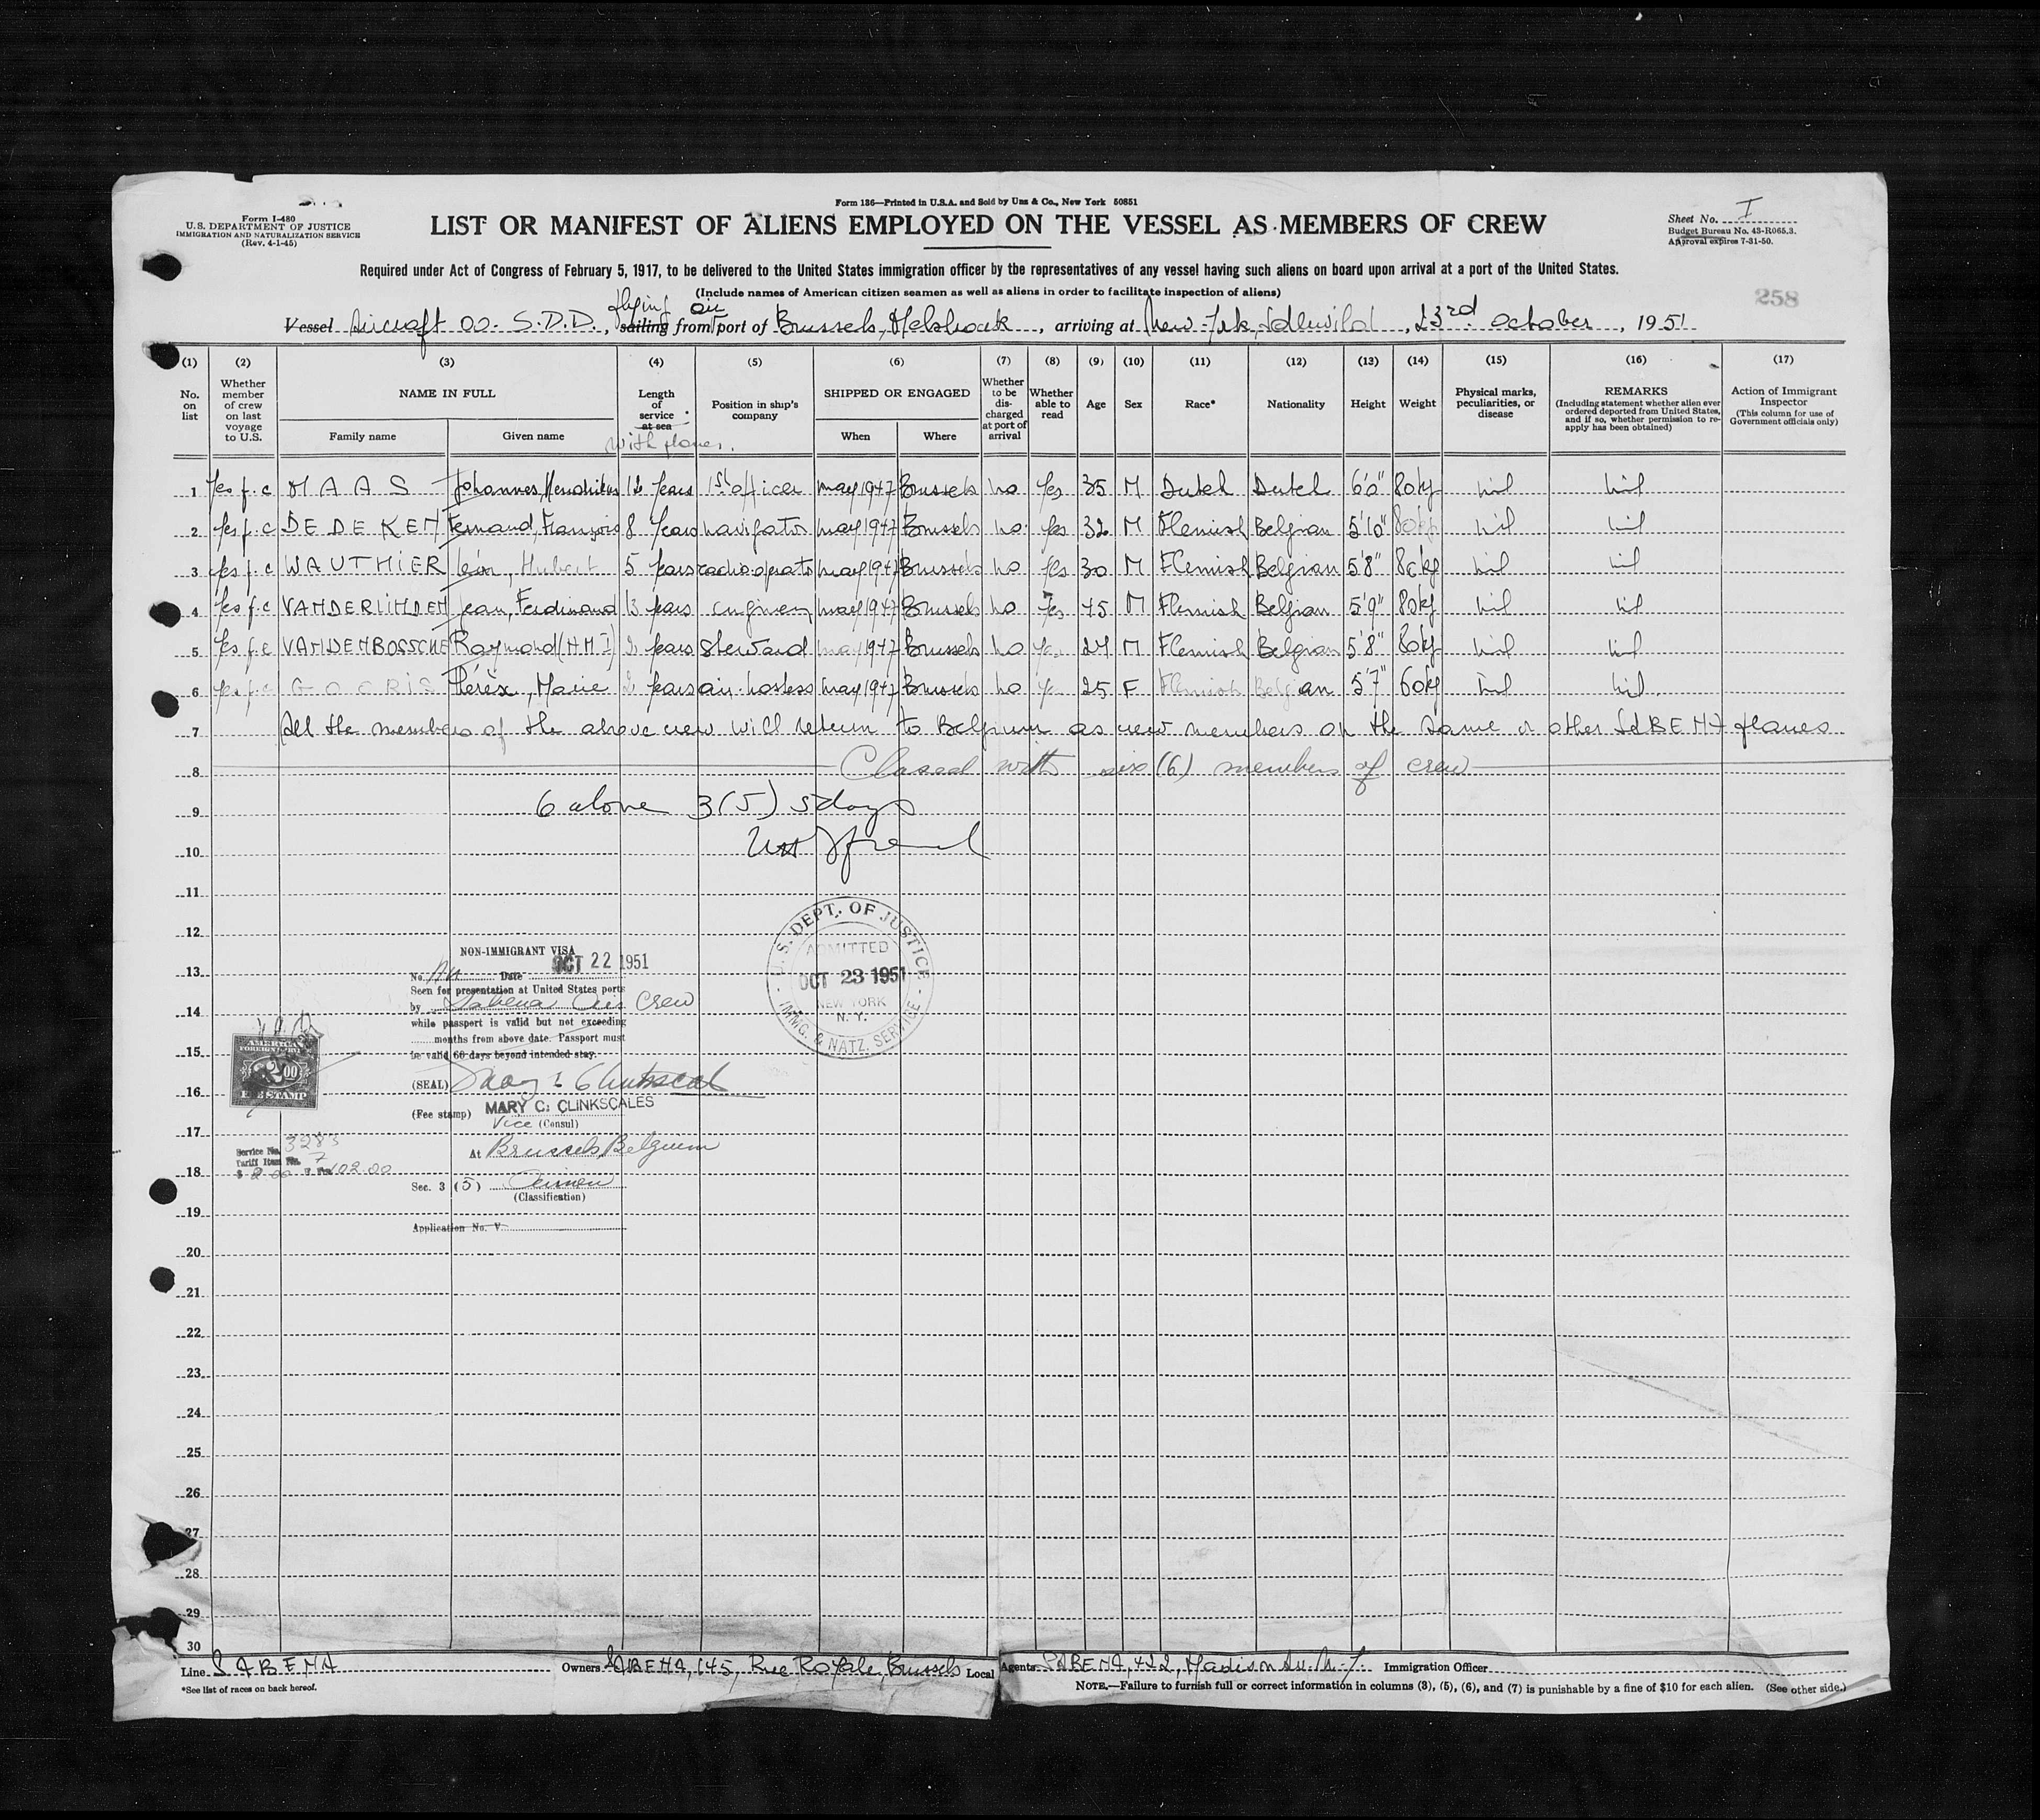 Form I-480
U.S. DEPARTMENT OF JUSTICE
IMMIGRATION AND NATURALIZATION SERVICE
(Rev. 4-1-45)
Form 136—Printed in U.S.A. and Sold by Unz & Co., New York 50851
LIST OR MANIFEST OF ALIENS EMPLOYED ON THE VESSEL AS MEMBERS OF CREW
Sheet No. I
Budget Bureau No. 43-R065.3.
Approval expires 7-31-50.
Required under Act of Congress of February 5, 1917, to be delivered to the United States immigration officer by the representatives of any vessel having such aliens on board upon arrival at a port of the United States.
(Include names of American citizen seamen as well as aliens in order to facilitate inspection of aliens)
258
flying air
Vessel Aircraft OO-S.D.D., sailing from port of Brussels, Melsbroek, arriving at New-York, Idlewild, 23rd October, 1951
(1) (2) (3) (4) (5) (6) (7) (8) (9) (10) (11) (12) (13) (14) (15) (16) (17)
No. on list
Whether member of crew on last voyage to U.S.
NAME IN FULL
Family name
Given name
Length of service at sea
with planes.
Position in ship's company
SHIPPED OR ENGAGED
When
Where
Whether to be discharged at port of arrival
Whether able to read
Age
Sex
Race*
Nationality
Height
Weight
Physical marks, peculiarities, or disease
REMARKS
(Including statement whether alien ever ordered deported from United States, and if so, whether permission to re-apply has been obtained)
Action of Immigrant Inspector
(This column for use of Government officials only)
1 Yes f.c MAAS Johannes, Hendrikus 12 years 1st officer may 1947 Brussels no Yes 35 M Dutch Dutch 6'0" 80kg nil nil
2 Yes f.c DEDEKEN Fernand, François 8 years navigator may 1947 Brussels no Yes 32 M Flemish Belgian 5'10" 80kg nil nil
3 Yes f.c WAUTHIER Léon, Hubert 5 years radio operator may 1947 Brussels no Yes 30 M Flemish Belgian 5'8" 80kg nil nil
4 Yes f.c VANDERLINDEN Jean, Ferdinand 13 years engineer may 1947 Brussels no Yes 45 M Flemish Belgian 5'9" 80kg nil nil
5 Yes f.c VANDENBOSSCHE Raymond (NMI) 2 years Steward may 1947 Brussels no Yes 27 M Flemish Belgian 5'8" 80kg nil nil
6 Yes f.c GOORIS Thérèse, Marie 2 years air-hostess may 1947 Brussels no Yes 25 F Flemish Belgian 5'7" 60kg nil nil
7 All the members of the above crew will return to Belgium as crew members on the same or other SABENA planes
8 Closed with six (6) members of crew
9 6 above 3(5) 5 days
10
11
12
NON-IMMIGRANT VISA
13
No. Date OCT 22 1951
Seen for presentation at United States ports
14
by Sabena Air Crew
while passport is valid but not exceeding
months from above date. Passport must
15
be valid 60 days beyond intended stay.
(SEAL) Mary C Clinkscales
16
(Fee stamp) MARY C. CLINKSCALES
Vice (Consul)
17
At Brussels, Belgium
18
Sec. 3 (5) Airmen
(Classification)
19
Application No. V
U.S. DEPT. OF JUSTICE
ADMITTED
OCT 23 1951
NEW YORK
N. Y.
IMMG. & NATZ. SERVICE
AMERICAN
FOREIGN SERVICE
$2.00
FEE STAMP
Service No. 3283
Tariff Item No. 7
$ 2.00 102.00
20
21
22
23
24
25
26
27
28
29
30
Line SABENA Owners SABENA, 145, Rue Royale, Brussels Local Agents SABENA, 422, Madison Av. N-Y. Immigration Officer
*See list of races on back hereof.
NOTE.—Failure to furnish full or correct information in columns (3), (5), (6), and (7) is punishable by a fine of $10 for each alien. (See other side.)